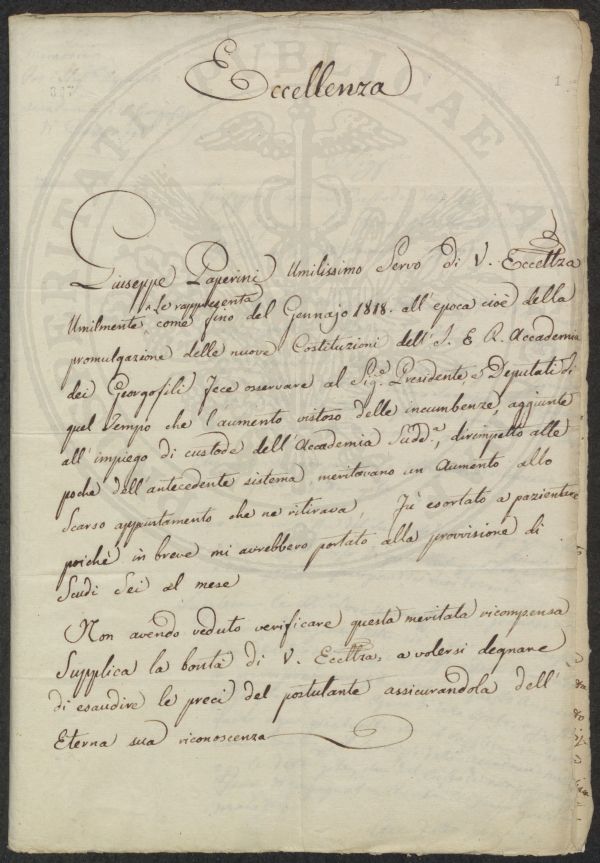 Eccellenza
327
1
Giuseppe Paperini Umilissimo Servo di V. Eccellza
Le rappresenta
Umilmente come fino del Gennajo 1818. all'epoca cioè della
promulgazione delle nuove Costituzioni dell'I. E R. Accademia
dei Georgofili fece osservare al Sig.e Presidente, e Deputati di
quel tempo che l'aumento vistoso delle incumbenze, aggiunte
all'impiego di custode dell'Accademia Sudd.a, dirimpetto alle
poche dell'antecedente sistema, meritavano un Aumento allo
Scarso appuntamento che ne ritirava, Fù esortato a pazientare
poichè in breve mi avrebbero portato alla provvisione di
Scudi Sei al mese
Non avendo veduto verificare questa meritata ricompensa
Supplica la bontà di V. Eccellza, a volersi degnare
di esaudire le preci del postulante assicurandola dell'
Eterna sua riconoscenza